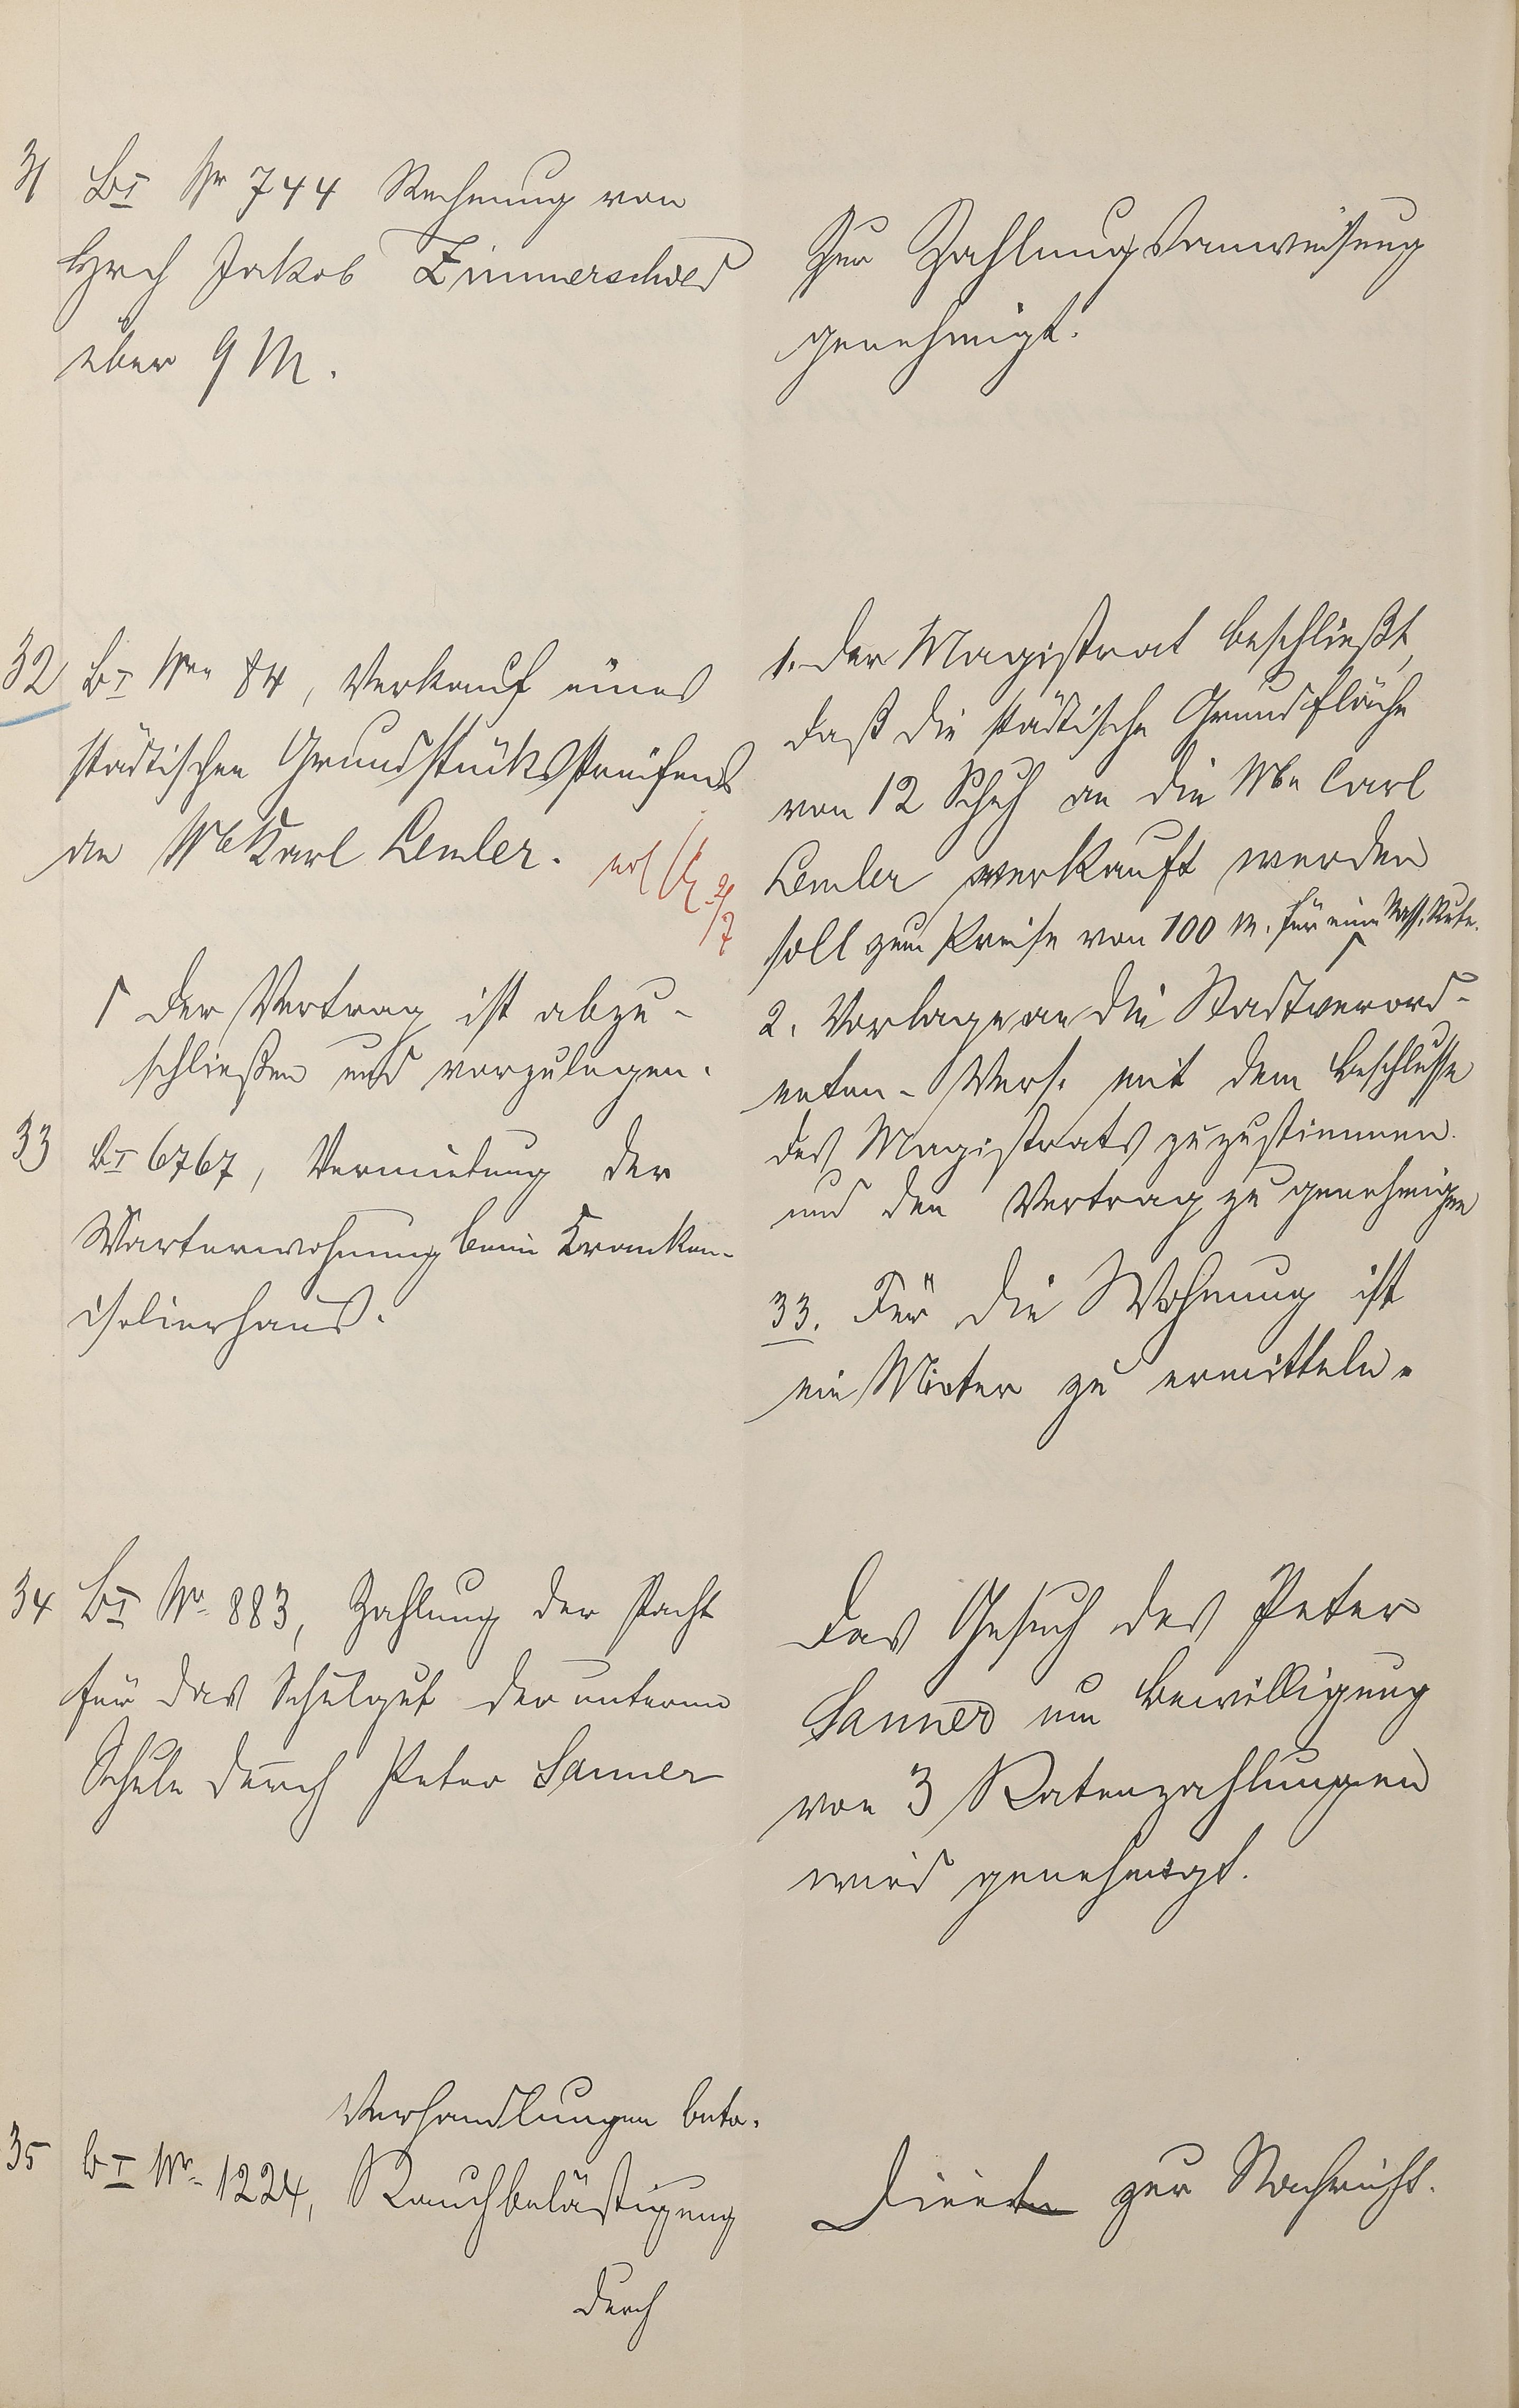 31 BI Nr 744 Rechnung von
Hrch Jakob Zimmerschied
über 9 M.
Zur Zahlungsanweisung
genehmigt.
32 BI Nro 84, Verkauf eines
städtischen Grundstücksstreifens
an Ww Karl Lemler.
erl 2/7
1. Der Magistrat beschließt,
daß die städtische Grundfläche
von 12 Schuh an die Ww Carl
Lemler verkauft werden
soll zum Preise von 100 M. für eine Nass. Rute.
2. Vorlage an die Stadtverord-
neten-Vers. mit dem Beschlusse
des Magistrats zuzustimmen
und den Vertrag zu genehmigen
Γ Der Vertrag ist abzu-
schließen und vorzulegen.
33 BI 6767, Vermietung der
Warterwohnung beim Kranken-
isolierhaus.
33. Für die Wohnung ist
ein Mieter zu ermitteln.
34 BI Nr. 883, Zahlung der Pacht
für das Schulgut der unteren
Schule durch Peter Sanner
Das Gesuch des Peter
Sanner um Bewilligung
von 3 Ratenzahlungen
wird genehmigt.
Verhandlungen betr.
35 BI Nr. 1224, Rauchbelästigung
durch
Diente zur Nachricht.